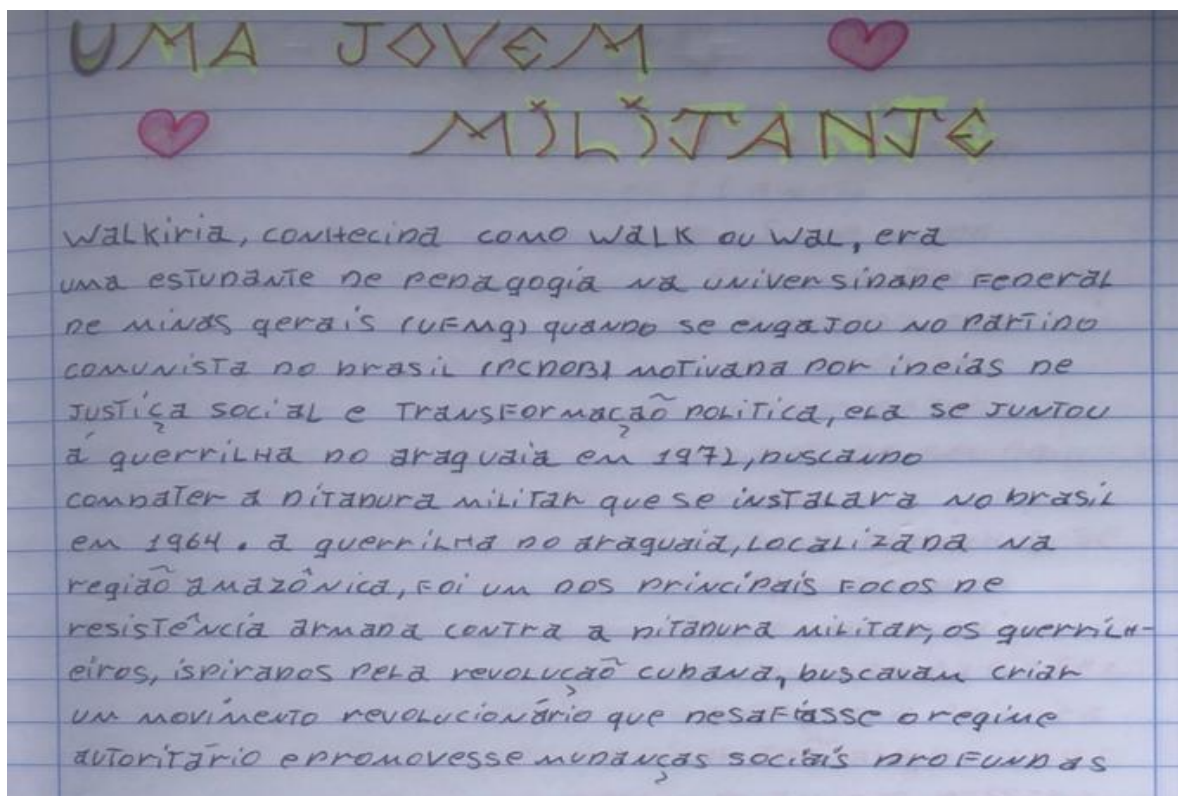 UMA JOVEM
MILITANTE
Walkiria, conhecida como Walk ou Wal, era
uma estudante de pedagogia na universidade Federal
de minas gerais (UFMG) quando se engajou no Partido
comunista do brasil (PCDOB) motivada por ideias de
justiça social e transformação politica, ela se juntou
á guerrilha do araguaia em 1972, buscando
combater a ditadura militar que se instalara no brasil
em 1964. a guerrilha do araguaia, localizada na
região amazônica, foi um dos principais focos de
resistência armada contra a ditadura militar, os guerrilh-
eiros, ispirados pela revolução cubana, buscavam criar
um movimento revolucionário que desafiasse o regime
autoritário e promovesse mudanças sociais profundas